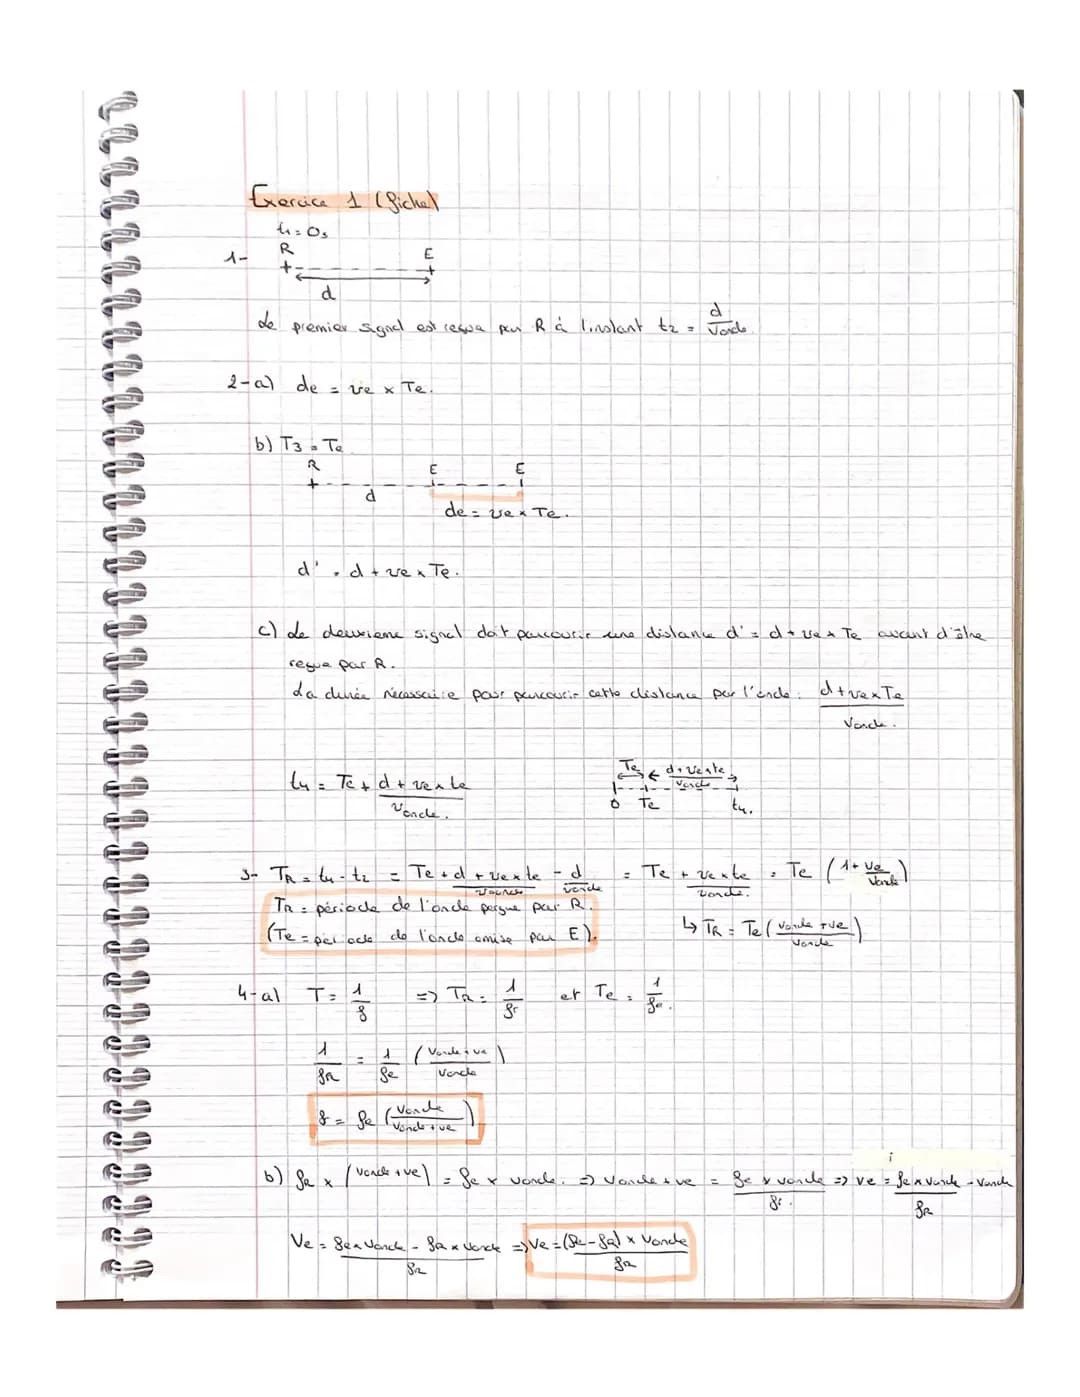 Exercice 1 (fiche)
t1 = 0s
1- R E
d
Le premier signal est reçue par R à l'instant t2 = d / Vonde
2-a) de = ve x Te.
b) T3 = Te
R E E
d
de = ve x Te.
d' = d + ve x Te.
c) Le deuxième signal doit parcourir une distance d' = d + ve x Te avant d'être
reçue par R.
La durée nécessaire pour parcourir cette distance par l'onde : (d + ve x Te) / Vonde.
t4 = Te + (d + ve x te) / Vonde.
Te (d + ve x te) / Vonde
0 Te t4.
3- TR = t4 - t2 = Te + (d + ve x te) / Vonde - d / Vonde = Te + (ve x te) / Vonde. = Te (1 + ve / Vonde)
TR = période de l'onde perçue par R.
(Te = période de l'onde émise par E).
↳ TR = Te ((Vonde + ve) / Vonde)
4-a) T = 1 / f => TR = 1 / fr et Te = 1 / fe.
1 / fR = 1 / fe ((Vonde + ve) / Vonde)
f = fe (Vonde / (Vonde + ve))
b) fR x (Vonde + ve) = fe x Vonde. => Vonde + ve = (fe x Vonde) / fr. => ve = (fe x Vonde) / fR - Vonde
Ve = (fe x Vonde - fR x Vonde) / fR => Ve = ((fe - fR) x Vonde) / fR